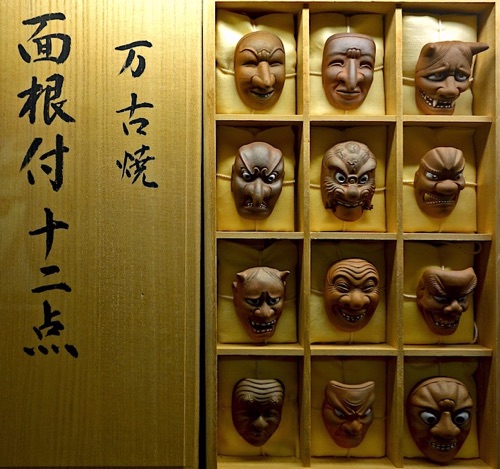 万古焼
面根付十二点